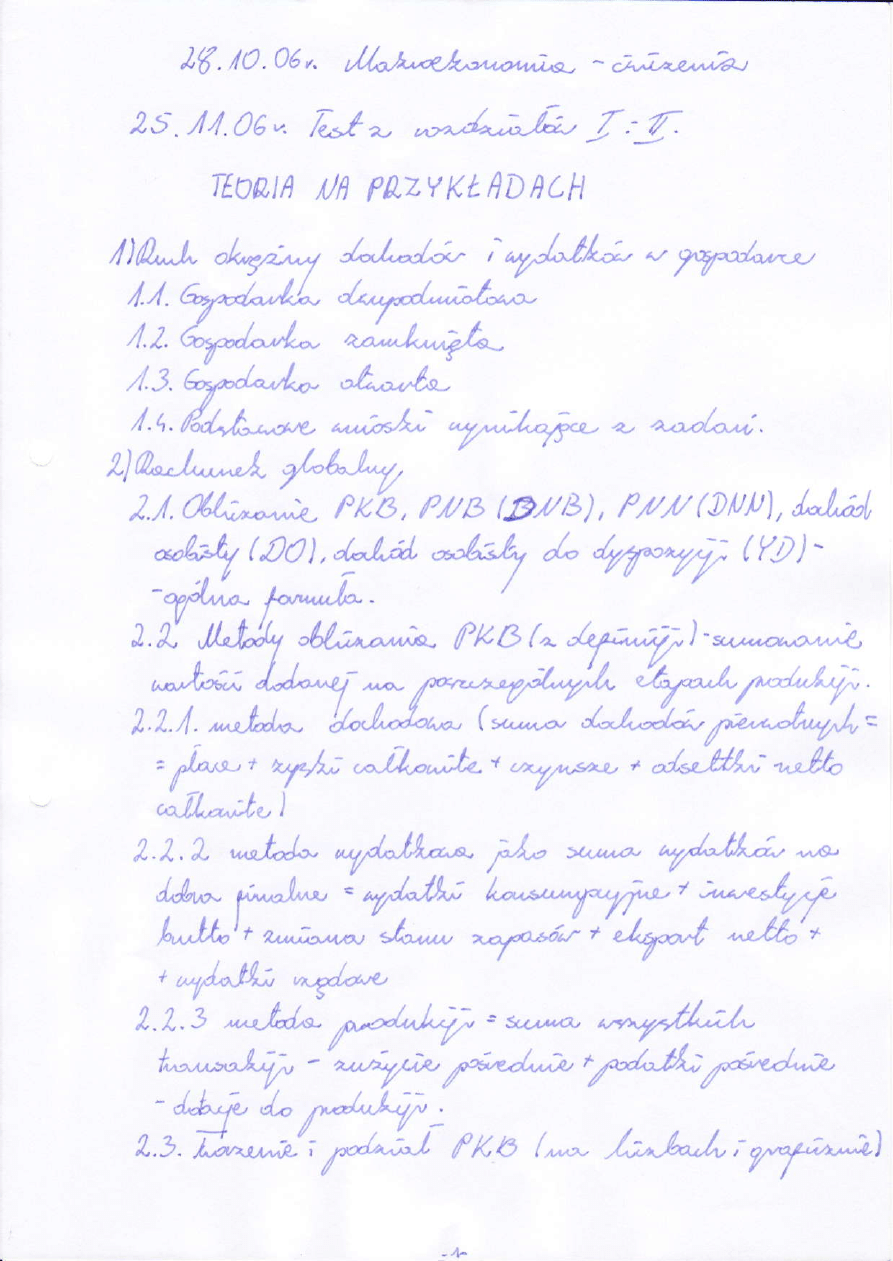 28.10.06r. Makroekonomia - ćwiczenia
25.11.06r. Test z rozdziałów I i II.
TEORIA NA PRZYKŁADACH
1) Ruch okrężny dochodów i wydatków w gospodarce
1.1. Gospodarka dwupodmiotowa
1.2. Gospodarka zamknięta
1.3. Gospodarka otwarta
1.4. Podstawowe wnioski wynikające z zadań.
2) Rachunek globalny
2.1. Obliczanie PKB, PNB (DNB), PNN (DNN), dochód
osobisty (DO), dochód osobisty do dyspozycji (YD) -
- ogólna formuła.
2.2 Metody obliczania PKB (z definicji) - sumowanie
wartości dodanej na poszczególnych etapach produkcji.
2.2.1. metoda dochodowa (suma dochodów pierwotnych =
= płace + zyski całkowite + czynsze + odsetki netto
całkowite)
2.2.2 metoda wydatkowa jako suma wydatków na
dobra finalne = wydatki konsumpcyjne + inwestycje
brutto + zmiana stanu zapasów + eksport netto +
+ wydatki rządowe
2.2.3 metoda produkcji = suma wszystkich
transakcji - zużycie pośrednie + podatki pośrednie
- dotacje do produkcji.
2.3. Tworzenie i podział PKB (na liczbach i graficznie)
-1-